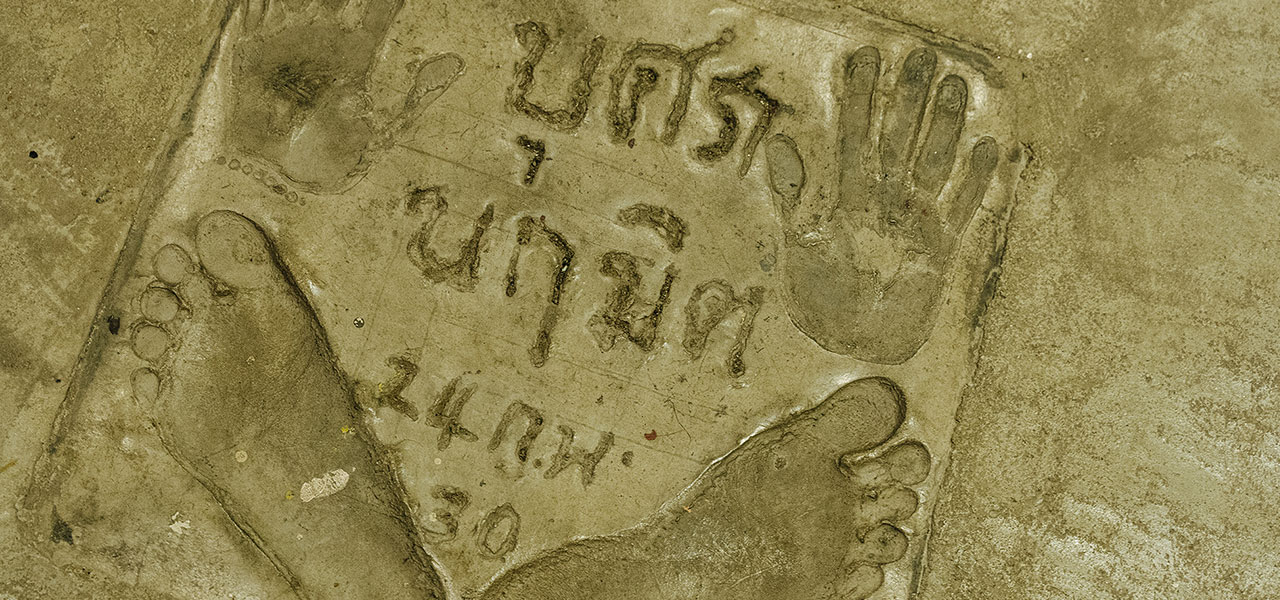 บุศร
นฤมิต
24 ก.พ.
30